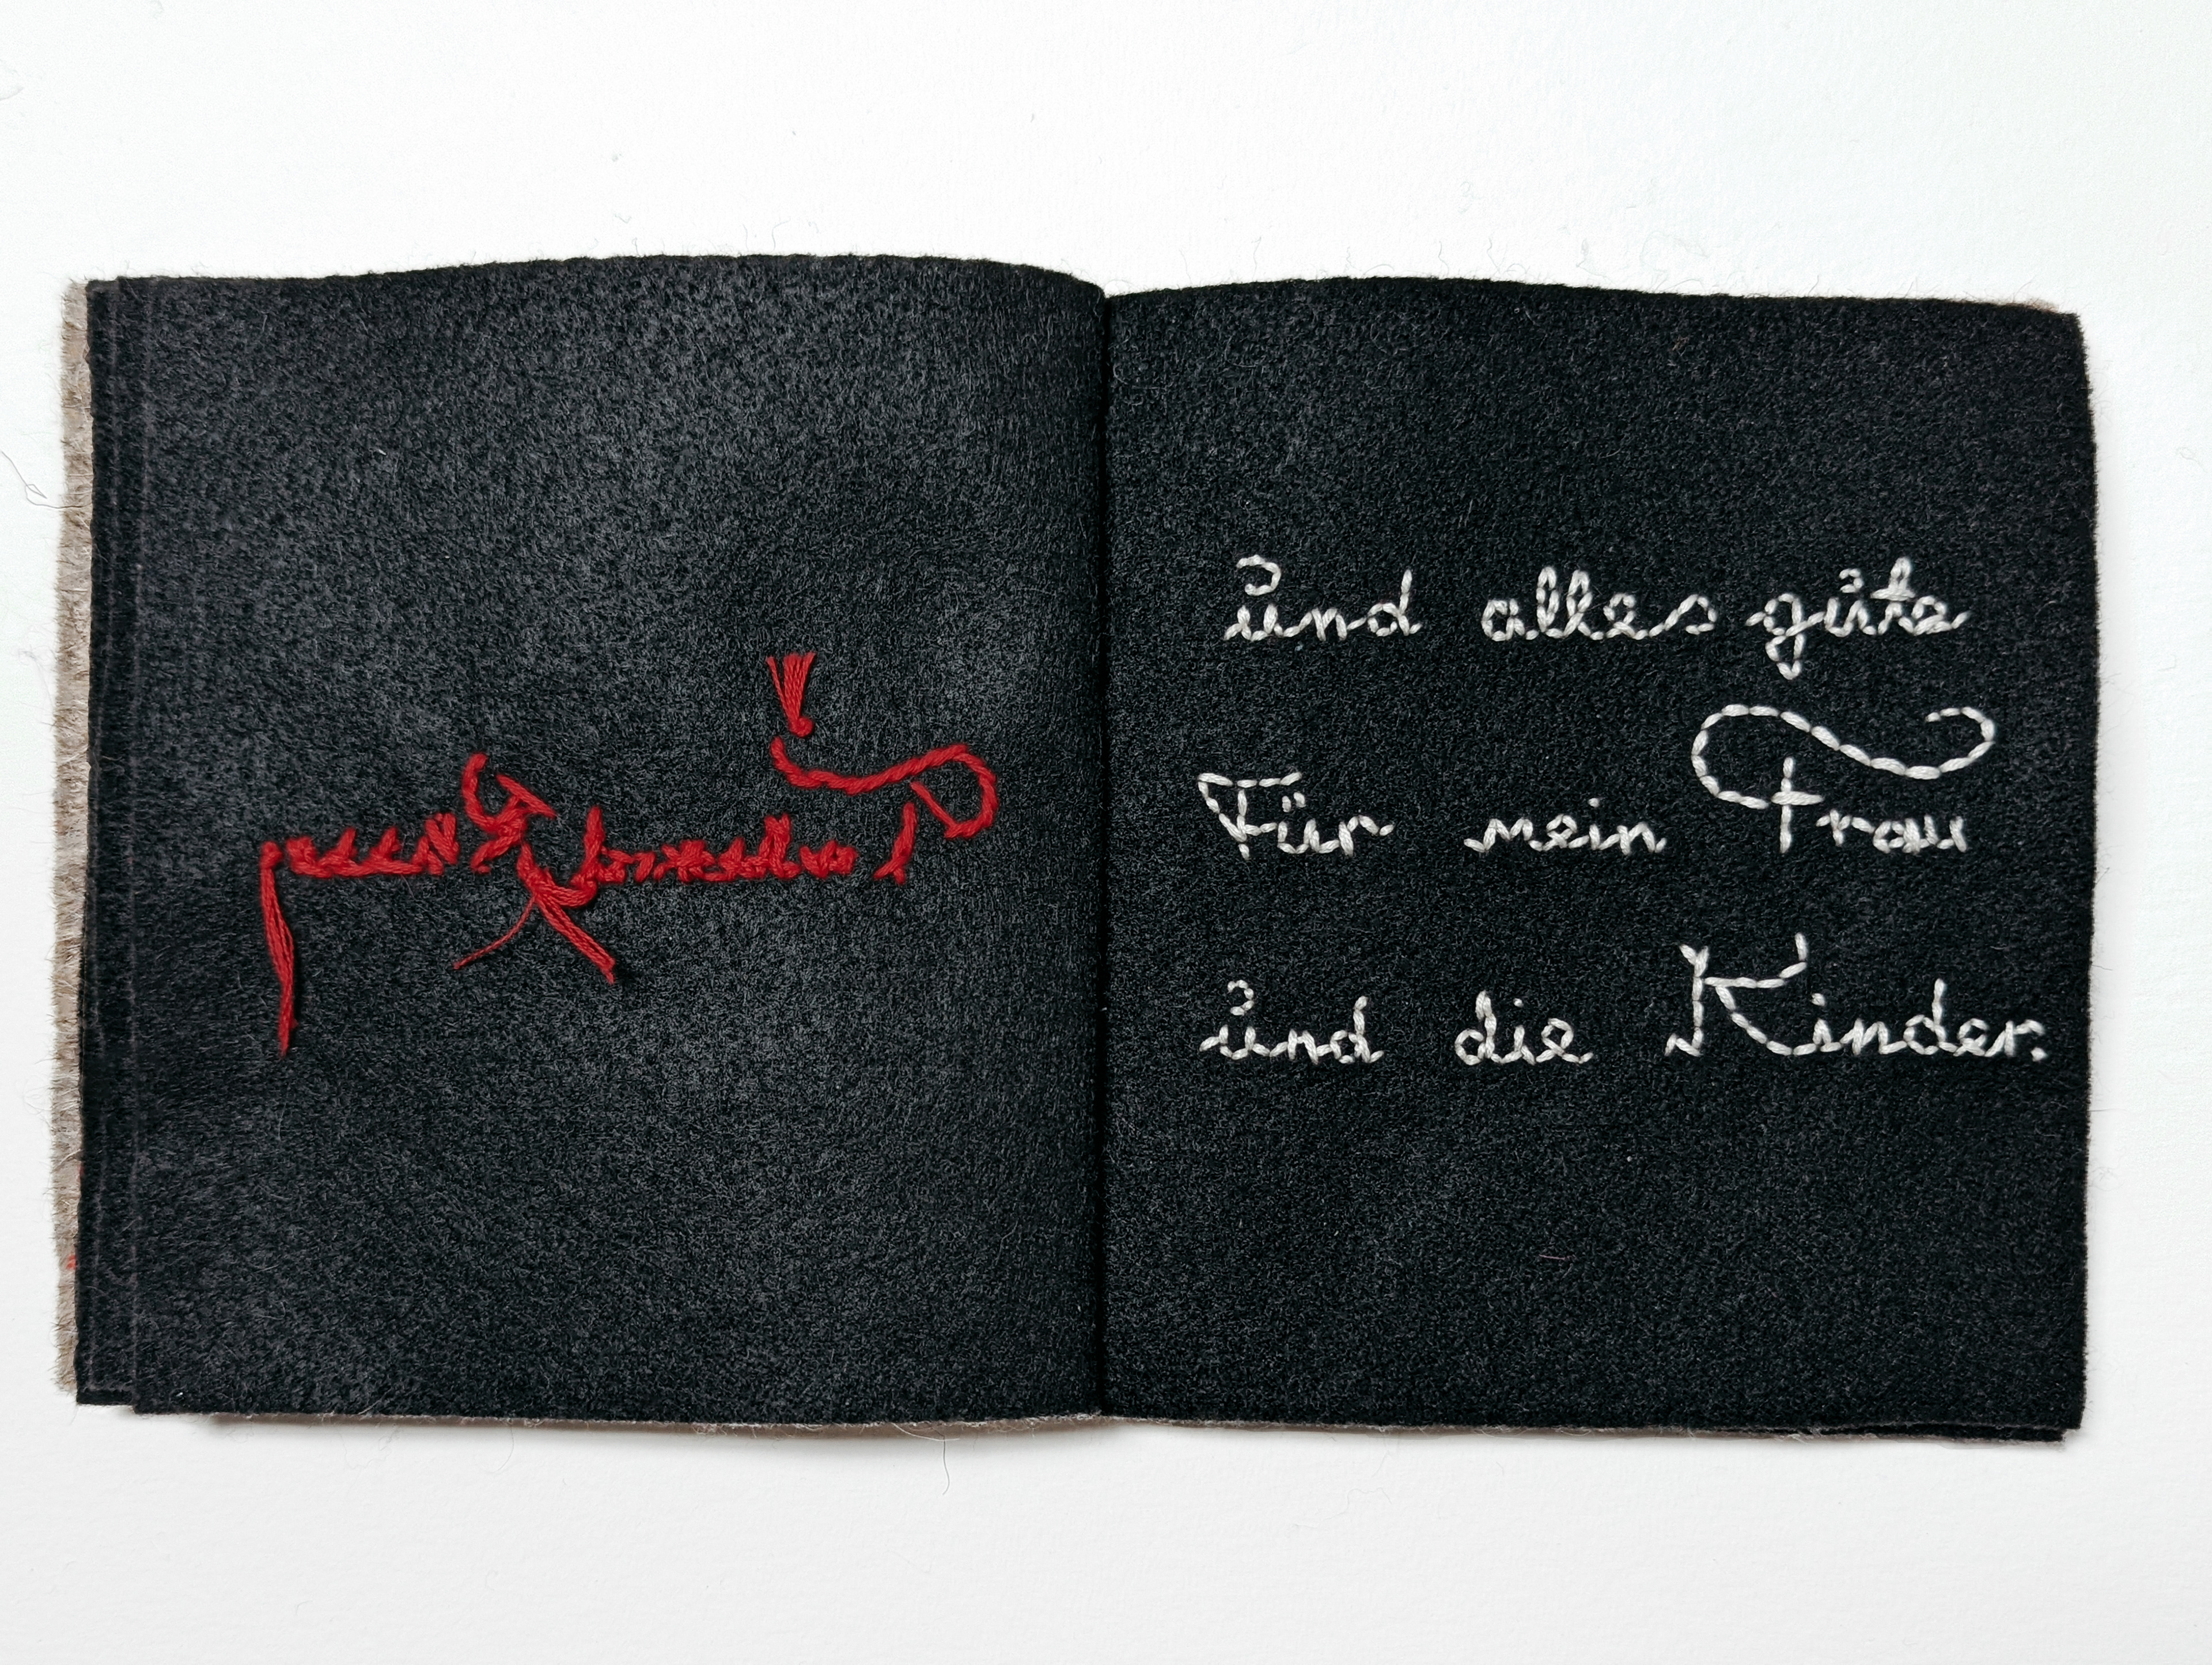 und alles gute
Für mein Frau
und die Kinder.